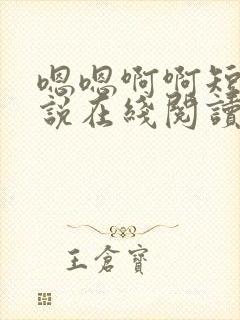 嗯嗯啊啊短
說在綫閱讀
王倉寶